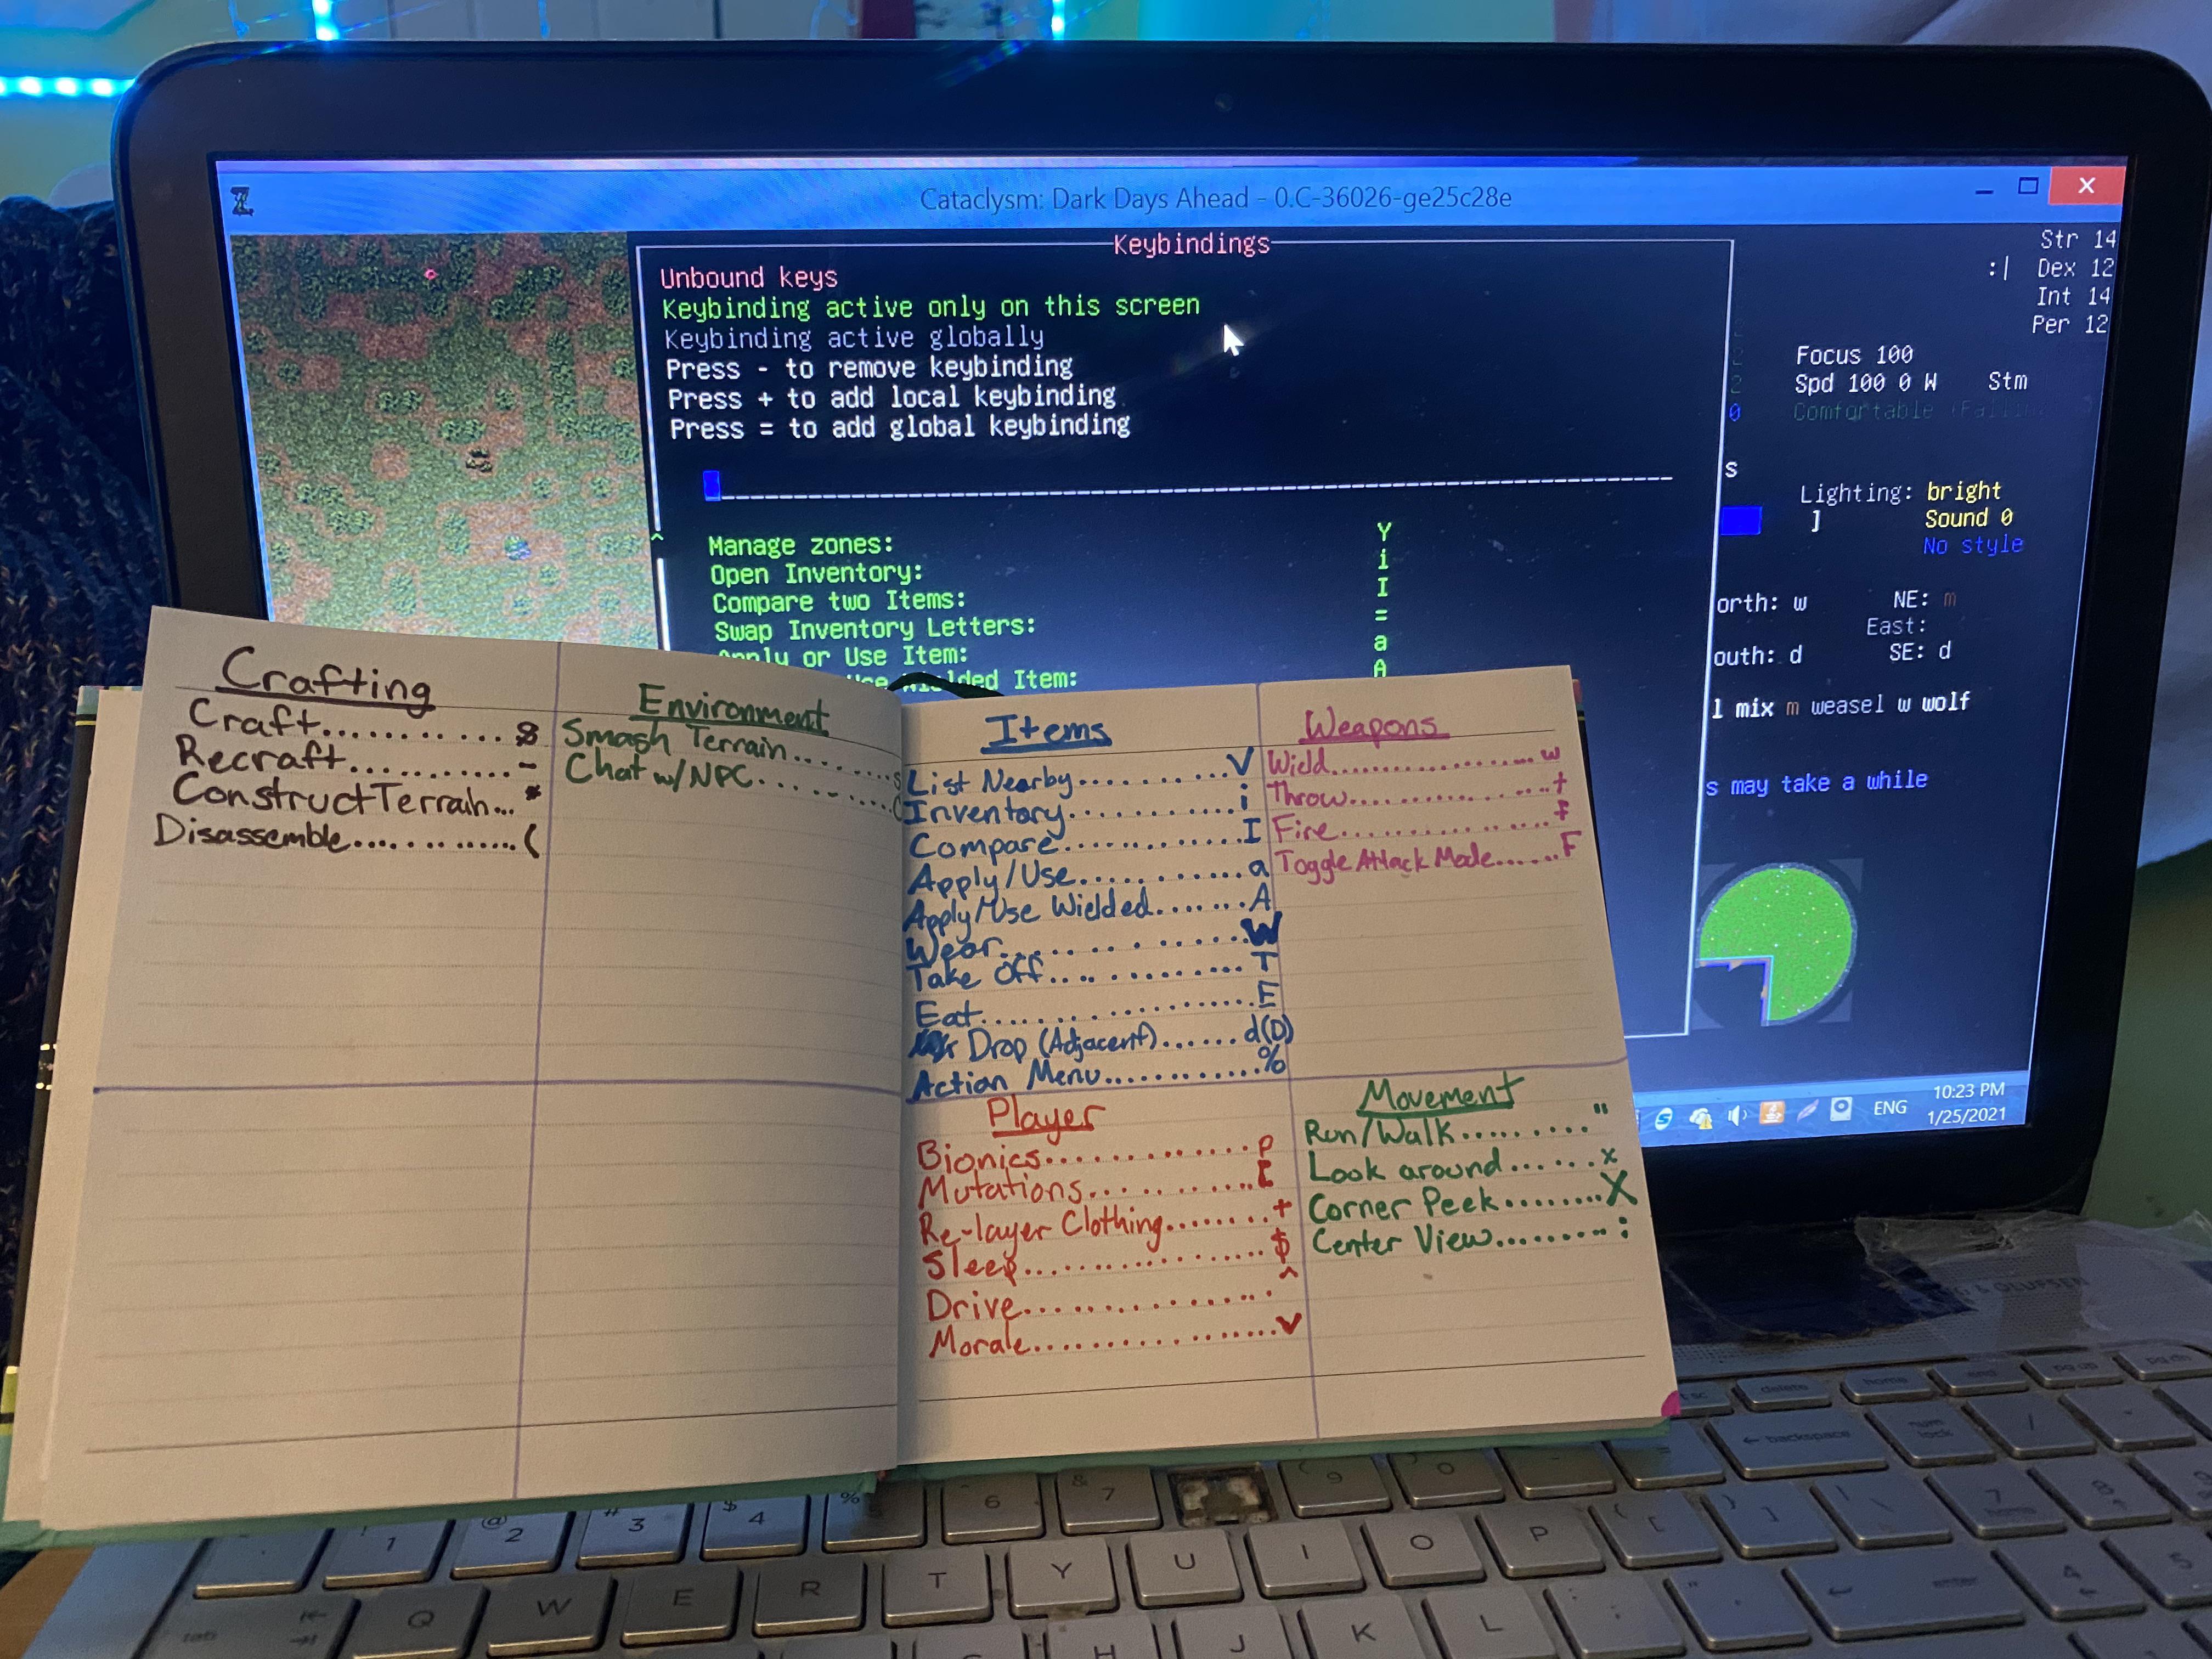 Cataclysm: Dark Days Ahead - 0.C-36026-ge25c28e
Keybindings
Unbound keys
Keybinding active only on this screen
Keybinding active globally
Press - to remove keybinding
Press + to add local keybinding
Press = to add global keybinding
Manage zones: Y
Open Inventory: i
Compare two Items: I
Swap Inventory Letters: =
Apply or Use Item: a
Wielded Item: A
Str 14
:| Dex 12
Int 14
Per 12
Focus 100
Spd 100 0 W Stm
Comfortable
s
Lighting: bright
] Sound 0
No style
orth: w NE: m
East:
outh: d SE: d
l mix m weasel w wolf
s may take a while
ENG
10:23 PM
1/25/2021
Crafting
Craft............&
Recraft...........-
Construct Terrain...*
Disassemble.............(
Environment
Smash Terrain........s
Chat w/NPC..........C
Items
List Nearby...........V
Inventory............i
Compare............I
Apply/Use............a
Apply/Use Wielded.......A
Wear...............W
Take Off.............T
Eat................E
Drop (Adjacent)......d(D)
Action Menu............%
Weapons
Wield...................w
Throw.................t
Fire..................f
Toggle Attack Mode......F
Player
Bionics..............p
Mutations............[
Re-layer Clothing........+
Sleep.................$
Drive................^
Morale................v
Movement
Run/Walk........."
Look around......x
Corner Peek........X
Center View.........:
1
@ 2
# 3
$ 4
%
^ 6
& 7
( 9
) 0
backspace
num lock
/
delete
home
pg up
tab
Q
W
E
R
T
Y
U
I
O
P
{ [
} ]
| \
7 home
enter
H
J
K
L
4
5